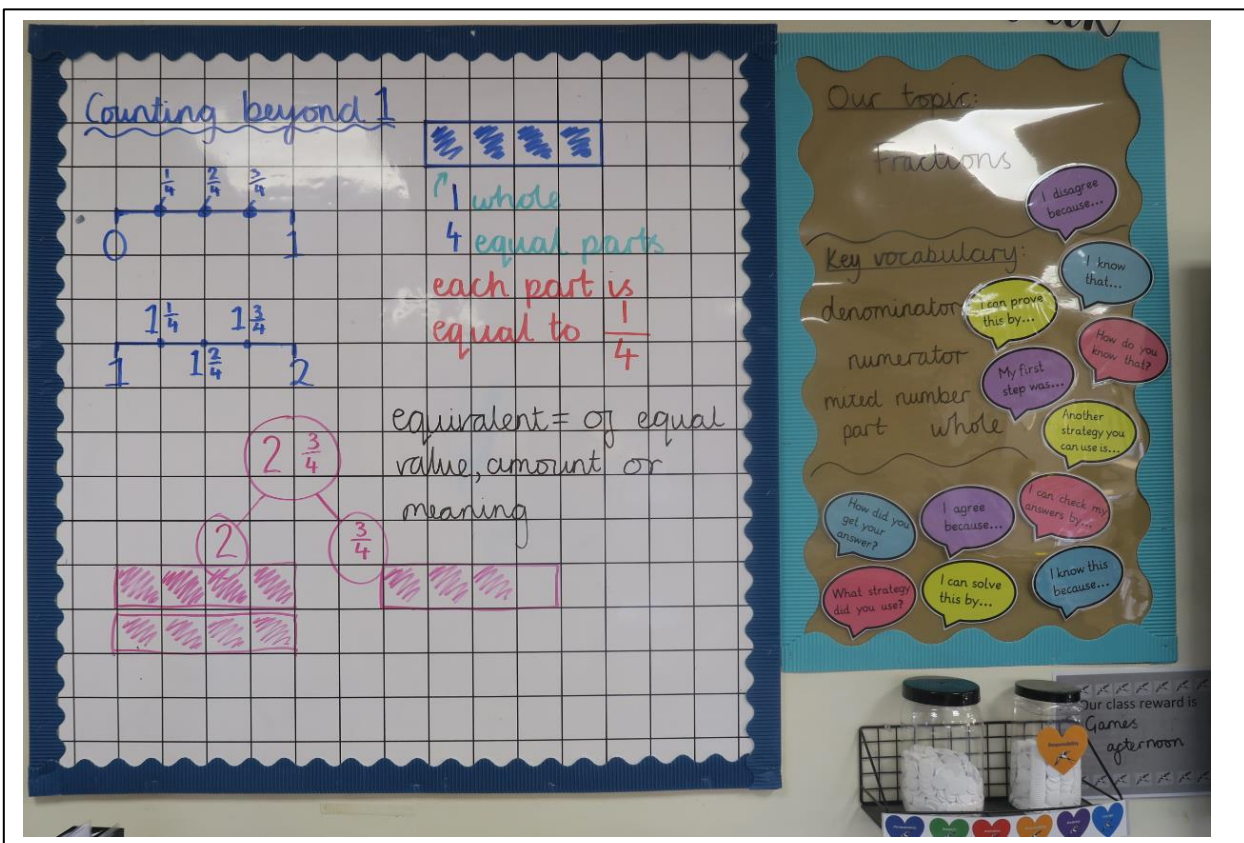 Counting beyond 1
1/4 2/4 3/4
0 1
1 1/4 1 3/4
1 2/4
1 2
1 whole
4 equal parts
each part is
equal to 1/4
equivalent = of equal
value, amount or
meaning
2 3/4
2 3/4
Our topic:
Fractions
Key vocabulary:
denominator
numerator
mixed number
part whole
I disagree
because...
I know
that...
I can prove
this by...
How do you
know that?
My first
step was...
Another
strategy you
can use is...
How did you
get your
answer?
I agree
because...
I can check my
answers by...
What strategy
did you use?
I can solve
this by...
I know this
because...
Our class reward is
Games
afternoon
Responsibility